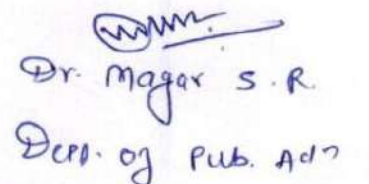 Dr. Magar S. R.
Dept. of Pub. Adn